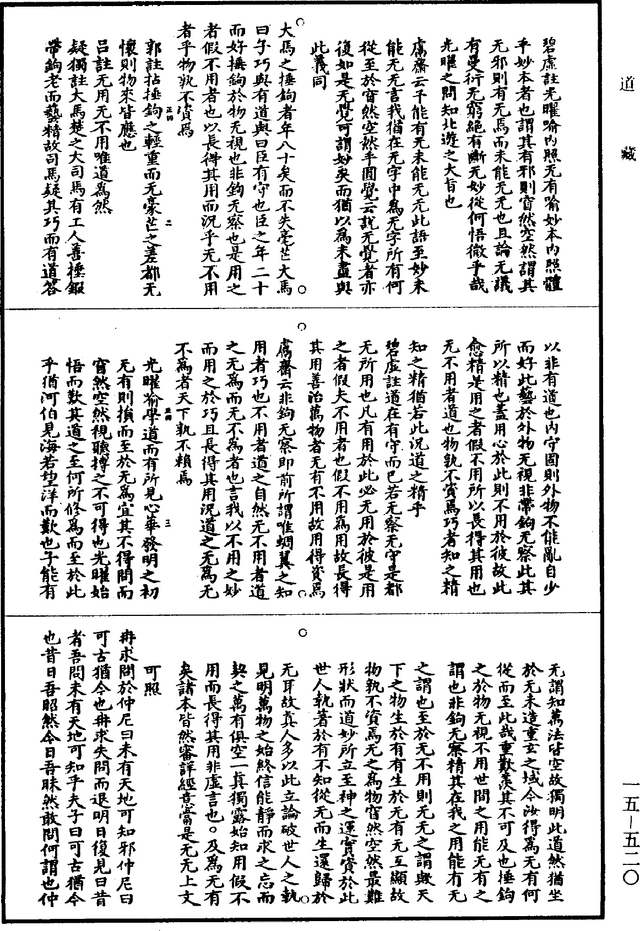 道藏
碧虛註光曜喻內照无有喻妙本內照體
乎妙本者也謂其有邪則窅然空然謂其
无邪則有无焉而未能无无也且論无議
有曼衍无窮絕有斷无妙從何悟微乎哉
光曜之問知北遊之大旨也
鬳齋云予能有无未能无无此語至妙未
能无无言我猶在无字中爲无字所有何
從至於窅然空然乎圓覺云說无覺者亦
復如是无覺可謂妙矣而猶以爲未盡與
此義同
大馬之捶鉤者年八十矣而不失毫芒大馬
曰子巧與有道與曰臣有守也臣之年二十
而好捶鉤於物无視也非鉤无察也是用之
者假不用者也以長得其用而況乎无不用
者乎物孰不資焉
郭註拈捶鉤之輕重而无豪芒之差都无
懷則物來皆應也
呂註无用无不用唯道爲然
疑獨註大馬楚之大司馬有工人善捶鍛
帶鉤老而藝精故司馬疑其巧而有道答
以非有道也內守固則外物不能亂自少
而好此藝於外物无視非帶鉤无察此其
所以精也蓋用心於此則不用於彼故此
愈精是用之者假不用所以長得其用也
无不用者道也物孰不資焉巧者知之精
知之精猶若此況道之精乎
碧虛註道在有守而已若无察无守是都
无所用也凡有用於此必无用於彼是用
之者假夫不用者也假不用爲用故長得
其用善治萬物者无有不用故用得資焉
鬳齋云非鉤无察即前所謂唯蜩翼之知
用者巧也不用者道之自然无不用者道
之无爲而无不爲者也言我以不用之妙
而用之於巧且長得其用況道之无爲无
不爲者天下孰不賴焉
光曜喻學道而有所見心華發明之初
无有則損而至於无爲宜其不得問而
窅然空然視聽搏之不可得也光曜始
悟而歎其道之至何所修爲而至於此
乎猶河伯見海若望洋而歎也予能有
无謂知萬法皆空故獨明此道然猶坐
於无未造重玄之域今汝得爲无有何
從而至此哉重歎羨其不可及也捶鉤
之於物无視不用世間之用能无有之
謂也非鉤无察精其在我之用能有无
之謂也至於无不用則无无之謂與天
下之物生於有有生於无有无互顯故
物孰不資焉无之爲物窅然空然最難
形狀而道妙所立至神之運實資於此
世人執著於有不知從无而生還歸於
无耳故眞人多以此立論破世人之執
見明萬物之始終信能靜而求之忘而
契之萬有俱空一眞獨露始知用假不
用而長得其用非虛言也。及爲无有
矣諸本皆然審詳經意當是无无上文
可照
冉求問於仲尼曰未有天地可知邪仲尼曰
可古猶今也冉求失問而退明日復見曰昔
者吾問未有天地可知乎夫子曰可古猶今
也昔日吾昭然今日吾昧然敢問何謂也仲
一五－五二〇